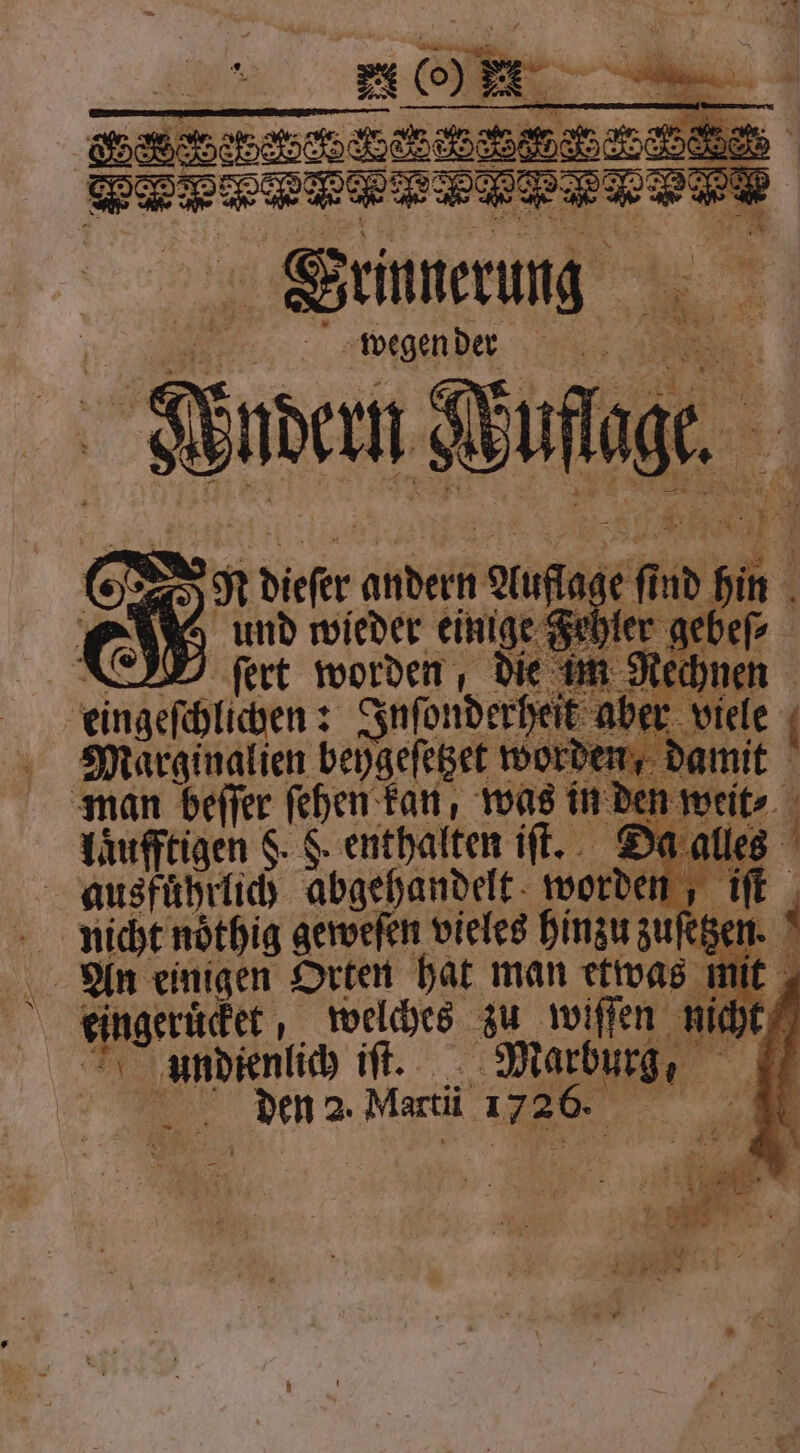 (o)
Erinnerung
wegen der
Andern Auflage.
IN dieſer andern Auflage ſind hin
und wieder einige Fehler gebeſ⸗
ſert worden, die im Rechnen
eingeſchlichen: Inſonderheit aber viele
Marginalien beygeſetzet worden, damit
man beſſer ſehen kan, was in den weit⸗
laͤufftigen §. §. enthalten iſt. Da alles
ausfuͤhrlich abgehandelt worden, iſt
nicht noͤthig geweſen vieles hinzu zuſetzen.
An einigen Orten hat man etwas mit
eingeruͤcket, welches zu wiſſen nicht
undienlich iſt. Marburg,
den 2. Martii 1726.